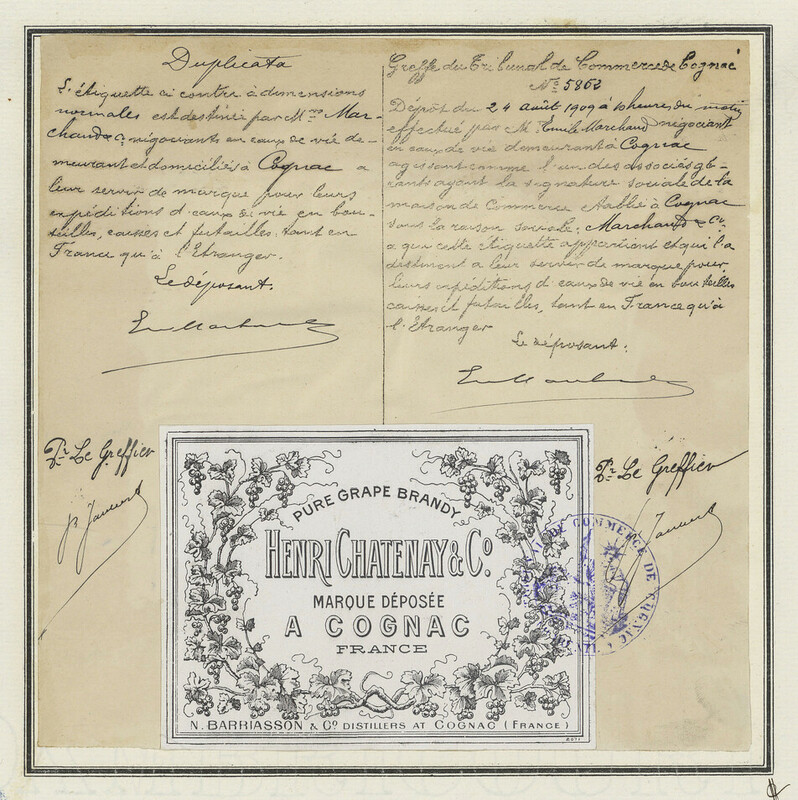 Duplicata
L'étiquette ci contre à dimensions
normales est destinée par Mrs Mar-
chand & Co négociants en eaux de vie de-
meurant et domiciliés à Cognac a
leur servir de marque pour leurs
expéditions d'eaux de vie en bou-
teilles, caisses et futailles, tant en
France qu'à l'Etranger.
Le déposant.
Pr Le Greffier
Greffe du Tribunal de Commerce de Cognac
No 5862
Dépôt du 24 Août 1909 à heure, du matin
effectué par M. Emile Marchand négociant
en eaux de vie demeurant à Cognac
agissant comme l'un des associés gé-
rants ayant la signature sociale de la
maison de Commerce établie à Cognac
sous la raison sociale: Marchand & Co
a qui cette étiquette appartient et qui l'a
destinent a leur servir de marque pour
leurs expéditions d'eaux de vie en bouteilles
caisses et futailles, tant en France qu'à
l'Etranger
Le déposant:
Pr Le Greffier
PURE GRAPE BRANDY
HENRI CHATENAY & Co.
MARQUE DÉPOSÉE
A COGNAC
FRANCE
N. BARRIASSON & Co DISTILLERS AT COGNAC (FRANCE)
DE COMMERCE DE COGNAC